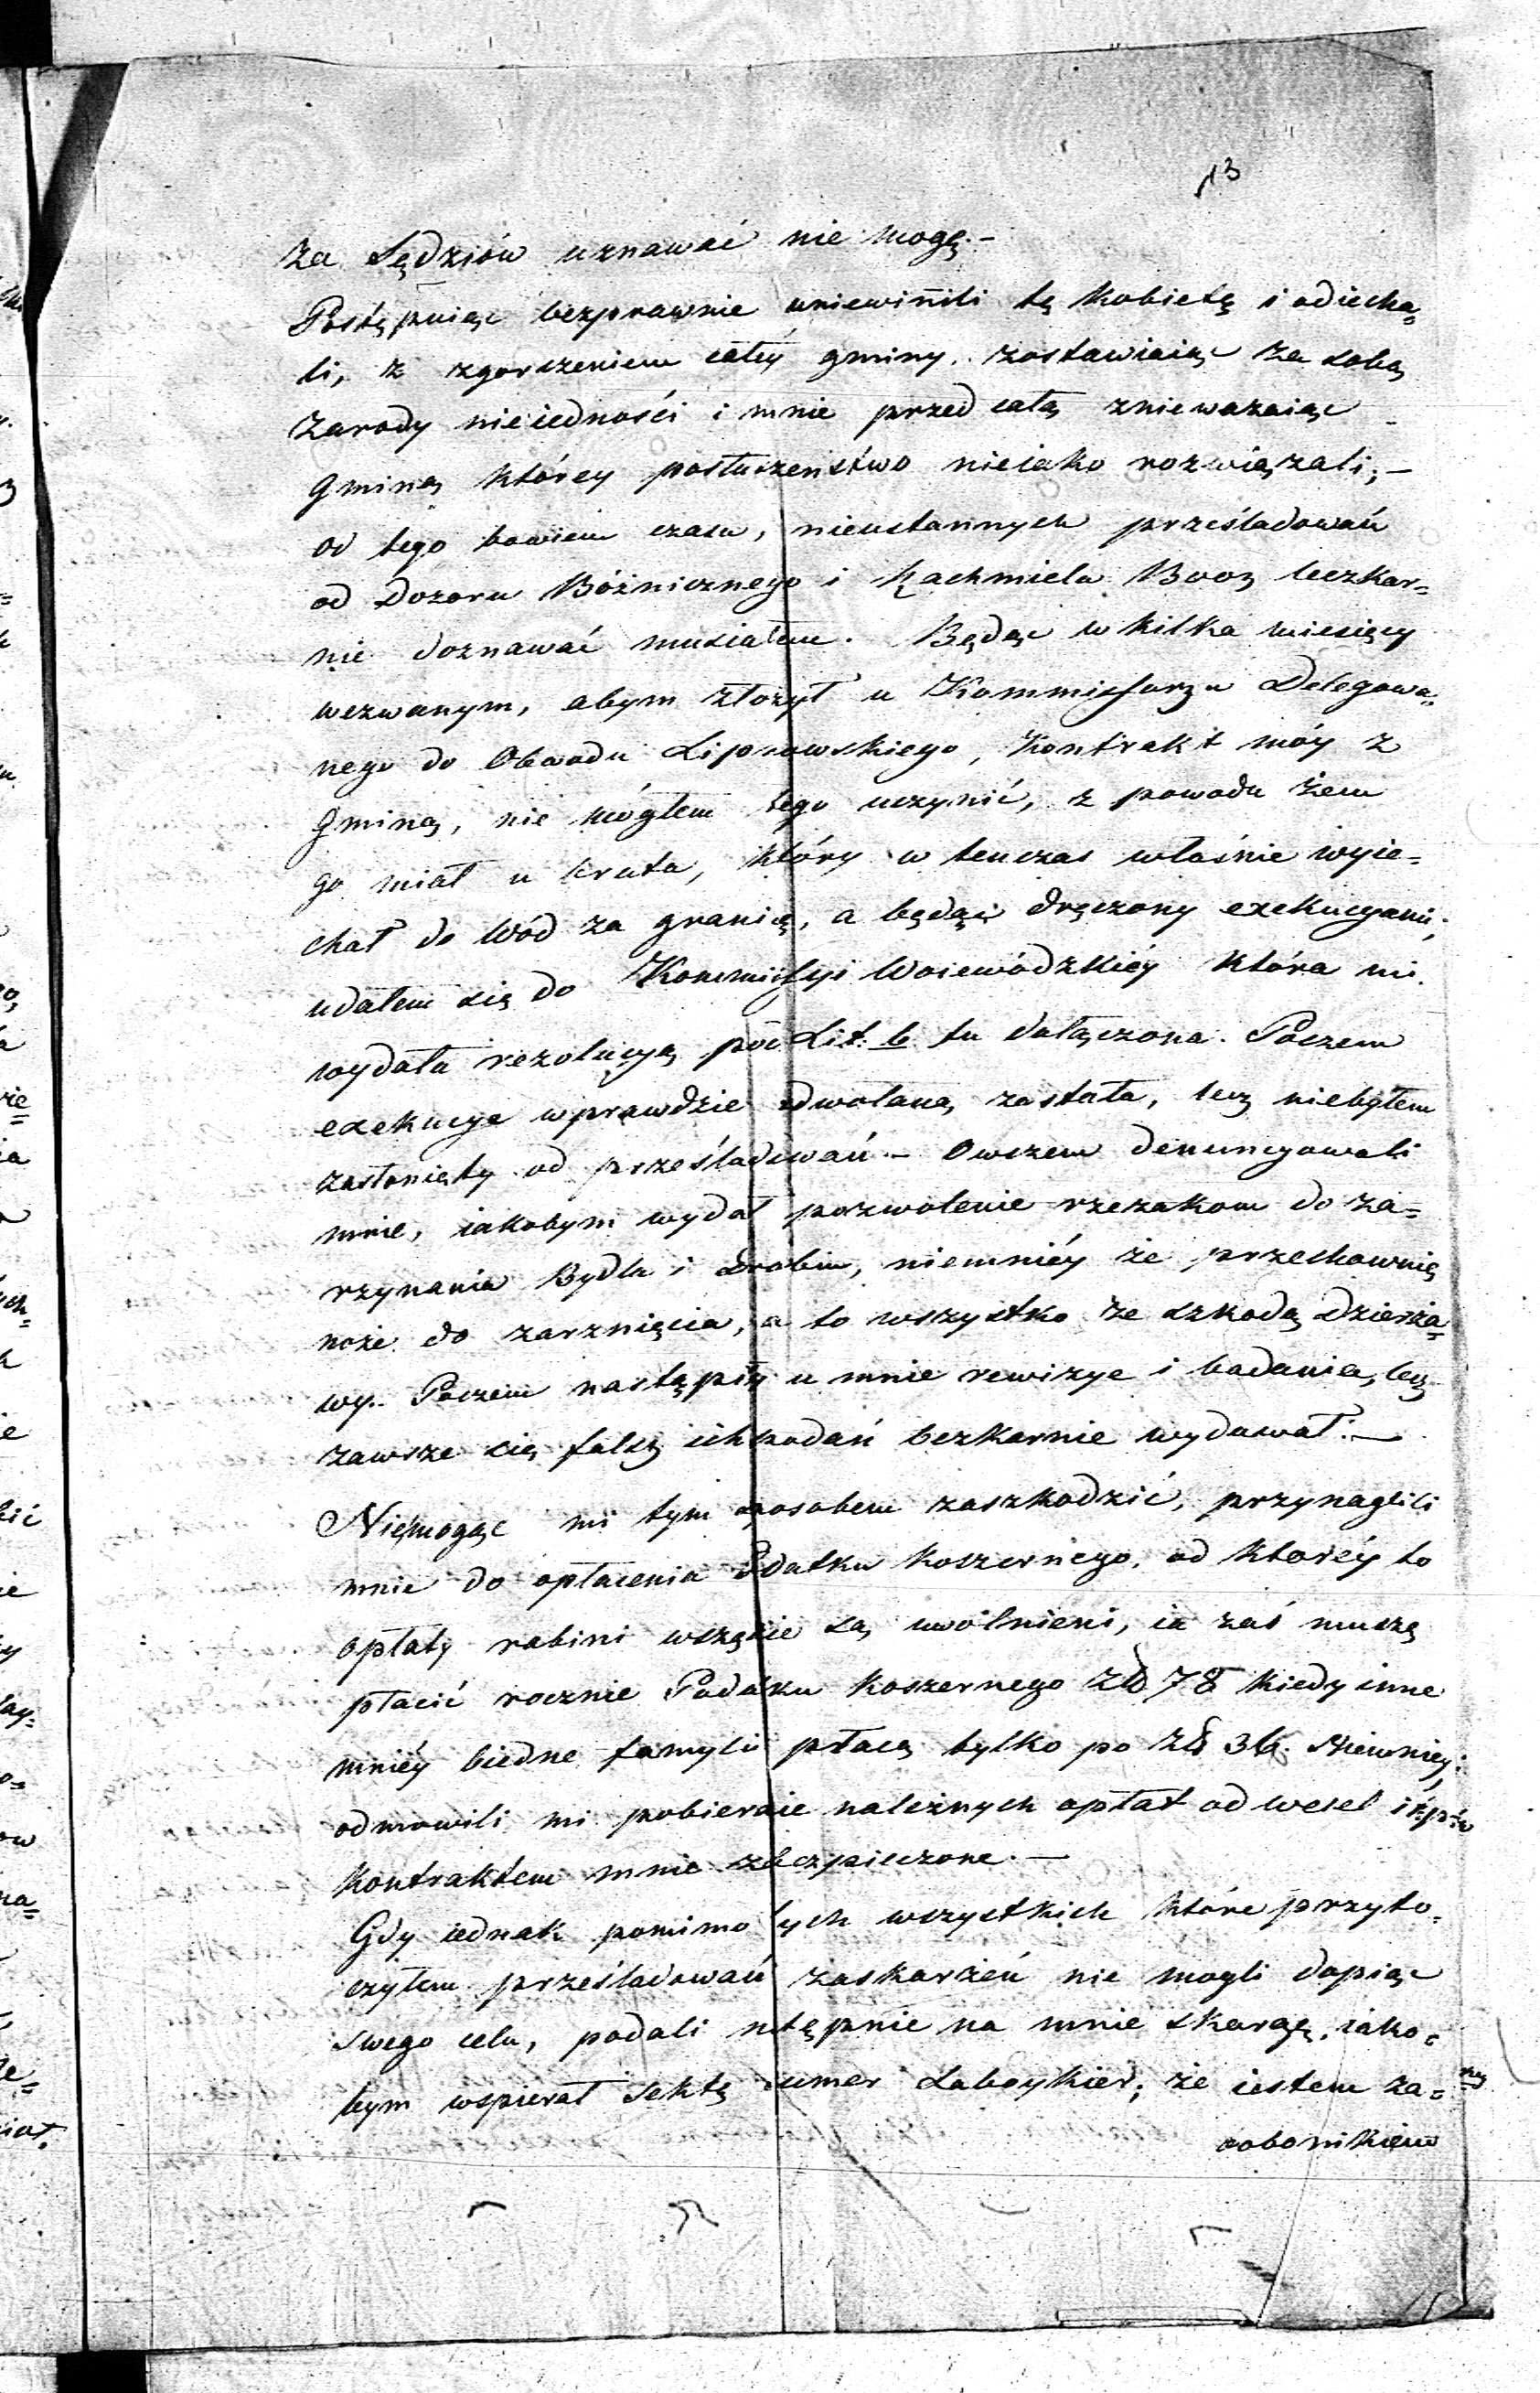 13
za Sędziów uznawać nie mogę.–
Postępuiąc bezprawnie uniewinili tę kobietę i odiecha=
li, z zgorszeniem całey gminy, zostawiaiąc za sobą
zarody nieiedności i mnie przed całą znieważaiąc
Gminą którey posłuszeństwo nieiako rozwiązali;–
od tego bowiem czasu, nieustannych prześladowań
od Dozoru Bóżnicznego i Kachmiela Booz bezkar=
nie doznawać musiałem. Będąc w kilka miesięcy
wezwanym, abym złożył u Kommissarza Delegowa=
nego do Obwodu Lipnowskiego, Kontrakt móy z
Gminą, nie mógłem tego uczynić, z powodu żem
go miał u brata, który w tenczas właśnie wyie=
chał do Wód za granicę, a będąc dręczony exekucyami,
udałem się do Kommissyi Woiewódzkiéy która mi
wydała rezolucyą pod Lit: b tu dołączona. Poczem
exekucye wprawdzie odwołaną została, lecz niebyłem
zasłonięty od prześladowań – Owszem denuncyowali
mnie, iakobym wydał pozwolenie rzezakom do za=
rzynania Bydła i Drobiu, niemniéy że przechownię
noże do zarznięcia, a to wszystko ze szkodą dzierża=
wy. Poczem nastąpiły u mnie rewizye i badania, lecz
zawsze się falsz ich podań bezkarnie wydawał.–
Niemogąc mi tym sposobem zaszkodzić, przynaglili
mnie do opłacenia Podatku koszernego, od któréy to
opłaty rabini wszędzie są uwolnieni, ia zaś muszę
płacić rocznie Podatku koszernego Zł 78 kiedy inne
mniéy biedne famylie płacą tylko po Zł 36. Niemniey
odmowili mi pobieranie należnych opłat od wesel i t.p.
kontraktem mnie zabezpieczone.–
Gdy iednak pomimo tych wszystkich które przyto=
czyłem prześladowań zaskarżeń nie mogli dopiąc
swego celu, podali następnie na mnie skargę, iako=
bym wspierał Sektę Sumer Laboykier; że iestem za=
bobonnikiem